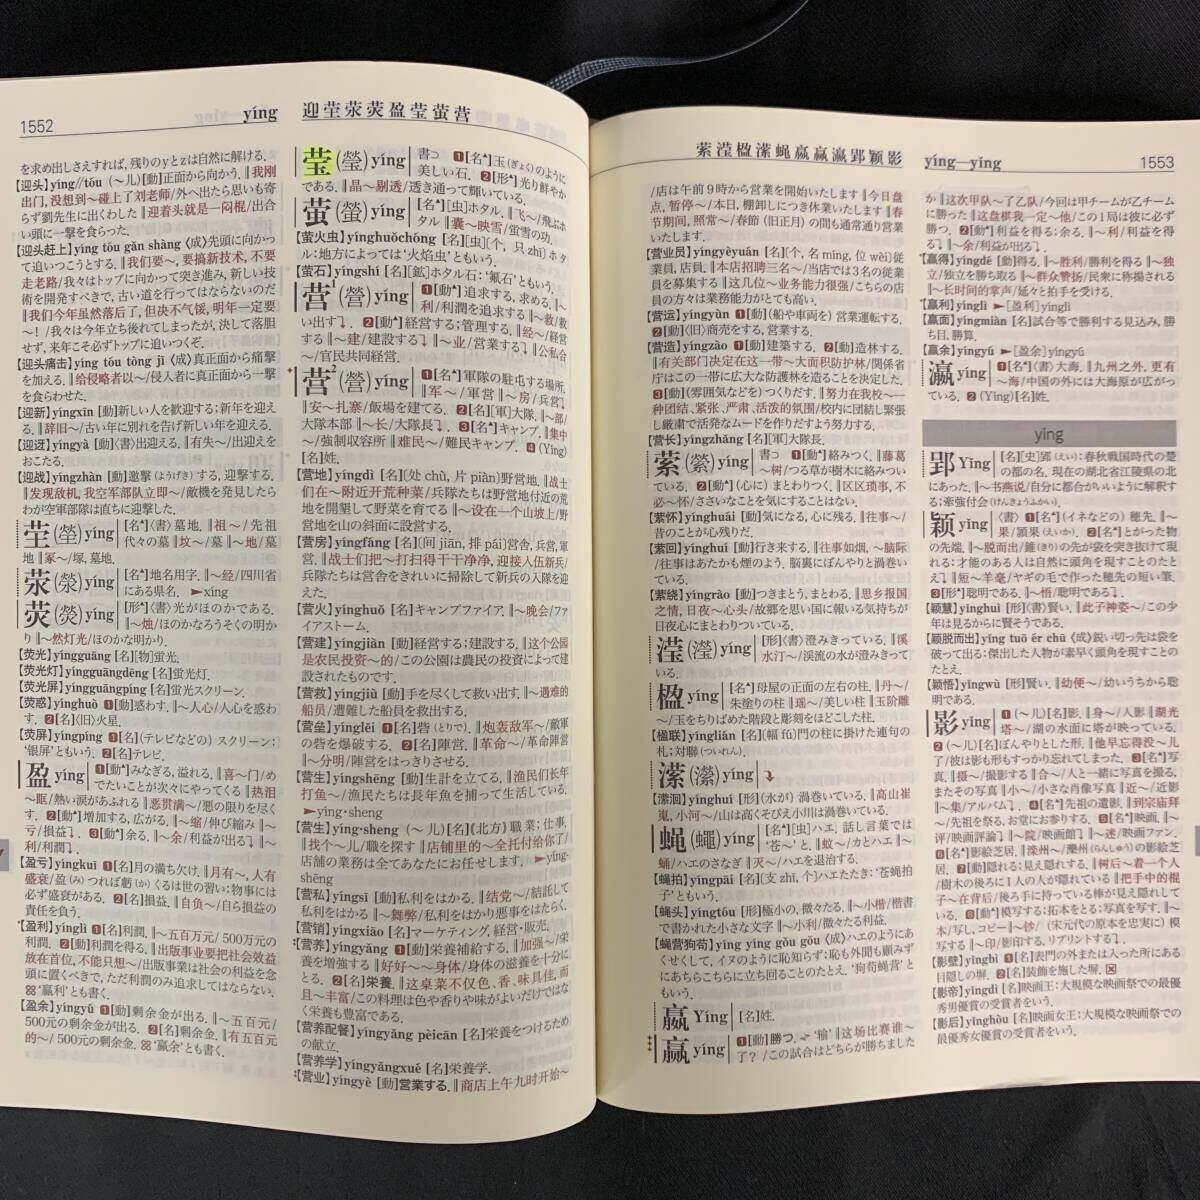 1552
yíng
迎茔荥荧盈莹萤营
を求め出しさえすれば, 残りのyとzは自然に解ける.
【迎头】yíng//tóu (～儿)[動]正面から向かう. ‖我刚
出门, 没想到～碰上了刘老师/外へ出たら思いも寄
らず劉先生に出くわした ‖迎着头就是一闷棍/出合
い頭に一撃を食らった.
【迎头赶上】yíng tóu gǎn shàng〈成〉先頭に向かっ
て追いつこうとする. ‖我们要～, 要搞新技术, 不要
走老路/我々はトップに向かって突き進み, 新しい技
術を開発すべきで, 古い道を行ってはならないのだ
‖我们今年虽然落后了, 但决不气馁, 明年一定要
～！/我々は今年立ち後れてしまったが, 決して落胆
せず, 来年こそ必ずトップに追いつくぞ.
【迎头痛击】yíng tóu tòng jī〈成〉真正面から痛撃
を加える. ‖给侵略者以～/侵入者に真正面から一撃
を食らわせた.
【迎新】yíngxīn [動]新しい人を歓迎する；新年を迎え
る. ‖辞旧～/古い年に別れを告げ新しい年を迎える.
【迎迓】yíngyà [動]〈書〉出迎える. ‖有失～/出迎えを
おこたる.
【迎战】yíngzhàn [動]邀撃(ようげき)する, 迎撃する.
‖发现敌机, 我空军部队立即～/敵機を発見したら
わが空軍部隊は直ちに迎撃した.
茔(塋) yíng [名*]〈書〉墓地. ‖祖～/先祖
代々の墓 ‖坟～/墓 ‖～地/墓
地 ‖冢～/塚, 墓地.
荥(滎) yíng [名*]地名用字. ‖～经/四川省
にある県名. ➤xíng
荧(熒) yíng [形*]〈書〉光がほのかである.
‖～烛/ほのかなろうそくの明か
り ‖～然灯光/ほのかな明かり.
【荧光】yíngguāng [名][物]蛍光.
【荧光灯】yíngguāngdēng [名]蛍光灯.
【荧光屏】yíngguāngpíng [名]蛍光スクリーン.
【荧惑】yínghuò ❶[動]惑わす. ‖～人心/人心を惑わ
す. ❷[名]〈旧〉火星.
【荧屏】yíngpíng ❶[名](テレビなどの)スクリーン；
‘银屏’ともいう. ❷[名]テレビ.
盈 yíng ❶[動*]みなぎる, 溢れる. ‖喜～门/め
でたいことが次々にやってくる ‖热泪
～眶/熱い涙があふれる ‖恶贯满～/悪の限りを尽く
す. ❷[動*]増加する, 広がる. ‖～缩/伸び縮み ‖～
亏/損益⤵. ❸[動*]余る. ‖～余/利益が出る⤵ ‖～
利/利潤⤵.
【盈亏】yíngkuī ❶[名]月の満ち欠け. ‖月有～, 人有
盛衰/盈(み)つれば虧(か)くるは世の習い；物事には
必ず盛衰がある. ❷[名]損益. ‖自负～/自ら損益の
責任を負う.
【盈利】yínglì ❶[名]利潤. ‖～五百万元/500万元の
利潤. ❷[動]利潤を得る. ‖出版事业要把社会效益
放在首位, 不能只想～/出版事業は社会の利益を念
頭に置くべきで, ただ利潤のみ追求してはならない.
⌘‘赢利’とも書く.
【盈余】yíngyú ❶[動]剰余金が出る. ‖～五百元/
500元の剰余金が出る. ❷[名]剰余金. ‖有五百元
的～/500元の剰余金. ⌘‘赢余’とも書く.
莹(瑩) yíng 書⊃ ❶[名*]玉(ぎょく)のように
美しい石. ❷[形*]光り鮮やか
である. ‖晶～剔透/透き通って輝いている.
萤(螢) yíng [名*][虫]ホタル. ‖飞～/飛ぶホ
タル ‖囊～映雪/蛍雪の功.
【萤火虫】yínghuǒchóng [名][虫](个, 只zhī)ホタ
ル：地方によっては‘火焰虫’ともいう.
【萤石】yíngshí [名][鉱]ホタル石：‘氟石’ともいう.
营¹(營) yíng ❶[動*]追求する, 求める. ‖～
利/利潤を追求する ‖～救/救
い出す⤵. ❷[動*]経営する；管理する. ‖经～/経営
する ‖～建/建設する⤵ ‖～业/営業する⤵ ‖公私合
～/官民共同経営.
营²(營) yíng ❶[名*]軍隊の駐屯する場所,
‖军～/軍営 ‖～房/兵営⤵
‖安～扎寨/飯場を建てる. ❷[名][軍]大隊. ‖～部/
大隊本部 ‖～长/大隊長⤵. ❸[名*]キャンプ. ‖集中
～/強制収容所 ‖难民～/難民キャンプ. ❹(Yíng)
[名]姓.
【营地】yíngdì [名](处chù, 片piàn)野営地. ‖战士
们在～附近开荒种菜/兵隊たちは営地付近の荒
地を開墾して野菜を育てる ‖～设在一个山坡上/野
営地を山の斜面に設営する.
【营房】yíngfáng [名](间jiān, 排pái)営舎, 兵営, 軍
営. ‖战士们把～打扫得干干净净, 迎接入伍新兵/
兵隊たちは営舎をきれいに掃除して新兵の入隊を迎
えた.
【营火】yínghuǒ [名]キャンプファイア. ‖～晚会/ファ
イアストーム.
【营建】yíngjiàn [動]経営する；建設する. ‖这个公园
是农民投资～的/この公園は農民の投資によって建
設されたものです.
【营救】yíngjiù [動]手を尽くして救い出す. ‖～遇难的
船员/遭難した船員を救出する.
【营垒】yínglěi ❶[名]砦(とりで). ‖炮轰敌军～/敵軍
の砦を爆破する. ❷[名]陣営. ‖革命～/革命陣営
‖～分明/陣営をはっきりさせる.
【营生】yíngshēng [動]生計を立てる. ‖渔民们长年
打鱼～/漁民たちは長年魚を捕って生活している.
➤yíng・sheng
【营生】yíng・sheng (～儿)[名]〈北方〉職業；仕事.
‖找个～儿/職を探す ‖店铺里的～全托付给你了/
店舗の業務は全てあなたにお任せします. ➤yíng-
shēng
【营私】yíngsī [動]私利をはかる. ‖结党～/結託して
私利をはかる ‖～舞弊/私利をはかり悪事をはたらく.
【营销】yíngxiāo [名]マーケティング, 経営・販売.
【营养】yíngyǎng ❶[動]栄養補給する. ‖加强～/栄
養を増強する ‖好好～～身体/身体の滋養を十分に
とる. ❷[名]栄養. ‖这桌菜不仅色、香、味具佳, 而
且～丰富/この料理は色や香りや味がよいだけではな
く栄養も豊富である.
【营养配餐】yíngyǎng pèicān [名]栄養をつけるため
の献立.
【营养学】yíngyǎngxué [名]栄養学.
【营业】yíngyè [動]営業する. ‖商店上午九时开始～
萦滢楹潆蝇嬴赢瀛郢颖影
yíng—yǐng
1553
/店は午前9時から営業を開始いたします ‖今日盘
点, 暂停～/本日, 棚卸しにつき休業いたします ‖春
节期间, 照常～/春節(旧正月)の間も通常通り営業
いたします.
【营业员】yíngyèyuán [名](个, 名míng, 位wèi)従
業員, 店員. ‖本店招聘三名～/当店では3名の従業
員を募集する ‖这几位～业务能力很强/こちらの店
員の方々は業務能力がとても高い.
【营运】yíngyùn ❶[動](船や車両を)営業運転する.
❷[動]〈旧〉商売をする, 営業する.
【营造】yíngzào ❶[動]建築する. ❷[動]造林する.
‖有关部门决定在这一带～大面积防护林/関係省
庁はこの一帯に広大な防護林を造ることを決定した.
❸[動](雰囲気などを)つくりだす. ‖努力在我校～一
种团结、紧张、严肃、活泼的氛围/校内に団結し緊張
し厳粛で活発なムードを作りだすよう努力する.
【营长】yíngzhǎng [名][軍]大隊長.
萦(縈) yíng 書⊃ ❶[動]絡みつく. ‖藤葛
～树/つる草が樹木に絡みつい
ている. ❷[動](心に)まとわりつく. ‖区区琐事, 不
必～怀/ささいなことを気にすることはない.
【萦怀】yínghuái [動]気になる, 心に残る. ‖往事～/
昔のことが心残りだ.
【萦回】yínghuí [動]行き来する. ‖往事如烟, ～脑际
/往事はあたかも煙のよう, 脳裏にぼんやりと渦巻い
ている.
【萦绕】yíngrào [動]つきまとう, まとわる. ‖思乡报国
之情, 日夜～心头/故郷を思い国に報いる気持ちが
日夜心にまとわりついている.
滢(瀅) yíng [形]〈書〉澄みきっている. ‖溪
水汀～/渓流の水が澄みきって
いる.
楹 yíng [名*]母屋の正面の左右の柱. ‖丹～/
朱塗りの柱 ‖瑶～/美しい柱 ‖玉阶雕
～/玉をちりばめた階段と彫刻をほどこした柱.
【楹联】yínglián [名](幅fú)門の柱に掛けた連句の
札；対聯(ついれん).
潆(瀠) yíng ⤵
【潆洄】yínghuí [形](水が)渦巻いている. ‖高山崔
嵬, 小河～/山は高くそびえ小川は渦巻いている.
蝇(蠅) yíng [名*][虫]ハエ, 話し言葉では
‘苍～’と. ‖蚊～/カとハエ ‖～
蛹/ハエのさなぎ ‖灭～/ハエを退治する.
【蝇拍】yíngpāi [名](支zhī, 个)ハエたたき：‘苍蝇拍
子’ともいう.
【蝇头】yíngtóu [形]極小の, 微々たる. ‖～小楷/楷書
で書かれた小さな文字 ‖～小利/微々たる利益.
【蝇营狗苟】yíng yíng gǒu gǒu〈成〉ハエのようにあ
くせくして, イヌのように恥知らず；恥も外聞も顧みず
にあちらこちらに立ち回ることのたとえ. ‘狗苟蝇营’と
もいう.
嬴 Yíng [名]姓.
赢 yíng ❶[動]勝つ. ↔‘输’ ‖这场比赛谁～
了？/この試合はどちらが勝ちました
か ‖这次甲队～了乙队/今回は甲チームが乙チーム
に勝った ‖这盘棋我一定～他/この1局は彼に必ず
勝つ. ❷[動*]利益を得る；余る. ‖～利/利益を得
る⤵ ‖～余/利益が出る⤵.
【赢得】yíngdé [動]得る. ‖～胜利/勝利を得る ‖～独
立/独立を勝ち取る ‖～群众赞扬/民衆に称揚される
‖～长时间的掌声/延々と拍手を受ける.
【赢利】yínglì ➤[盈利]yínglì
【赢面】yíngmiàn [名]試合等で勝利する見込み, 勝
ち目, 勝算.
【赢余】yíngyú ➤[盈余]yíngyú
瀛 yíng ❶[名*]〈書〉大海. ‖九州之外, 更有
～海/中国の外には大海原が広がって
いる. ❷(Yíng)[名]姓.
yǐng
郢 Yǐng [名][史]郢(えい)：春秋戦国時代の楚
の都の名. 現在の湖北省江陵県の北
にあった. ‖～书燕说/自分に都合がいいように解釈す
る；牽強付会(けんきょうふかい).
颖 yǐng〈書〉❶[名*](イネなどの)穂先. ‖～
果/頴果(えいか). ❷[名*]とがった物
の先端. ‖～脱而出/錐(きり)の先が袋を突き抜けて現
れる；才能のある人は自然に頭角を現すことのたと
え⤵ ‖短～羊毫/ヤギの毛で作った穂先の短い筆.
❸[形*]聡明である. ‖～悟/聡明である⤵.
【颖慧】yǐnghuì [形]〈書〉賢い. ‖此子神姿～/この少
年は見るからに賢そうである.
【颖脱而出】yǐng tuō ér chū〈成〉鋭い切っ先は袋を
破って出る：傑出した人物が素早く頭角を現すことの
たとえ.
【颖悟】yǐngwù [形]賢い. ‖幼便～/幼いうちから聡
明である.
影 yǐng ❶(～儿)[名]影. ‖身～/人影 ‖湖光
塔～/湖の水面に塔が映っている.
❷(～儿)[名]ぼんやりとした形. ‖他早忘得没～儿
了/彼は影も形もすっかり忘れてしまった. ❸[名*]写
真. ‖摄～/撮影する ‖合～/人と一緒に写真を撮る,
またその写真 ‖小～/小さな肖像写真 ‖近～/近影
‖～集/アルバム⤵. ❹[名*]先祖の遺影. ‖到宗庙拜
～/先祖を祭る. お堂にお参りする. ❺[名*]映画. ‖～
评/映画評論⤵ ‖～院/映画館⤵ ‖～迷/映画ファン.
❻[名*]影絵芝居. ‖滦州～/灤州(らんしゅう)の影絵芝
居. ❼[動]隠れる；見え隠れする. ‖树后～着一个人
/樹木の後ろに1人の人が隠れている ‖把手中的棍
子～在背后/後ろ手に持っている棒が見え隠れして
いる. ❽[動*]模写する；拓本をとる；写真を写す. ‖～
本/写し, コピー ‖～钞/(宋元代の原本を忠実に)模
写する ‖～印/影印する, リプリントする⤵.
【影壁】yǐngbì ❶[名]表門の外または入った所にある
目隠しの塀. ❷[名]装飾を施した塀.
【影帝】yǐngdì [名]映画王：大規模な映画祭での最優
秀男優賞の受賞者をいう.
【影后】yǐnghòu [名]映画女王：大規模な映画祭での
最優秀女優賞の受賞者をいう.